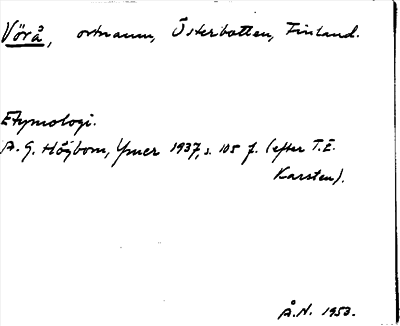 Vörå, ortnamn, Österbotten, Finland.
Etymologi.
A. G. Högbom, Ymer 1937, s. 105 f. (efter T. E.
Karsten).
Å. N. 1953.